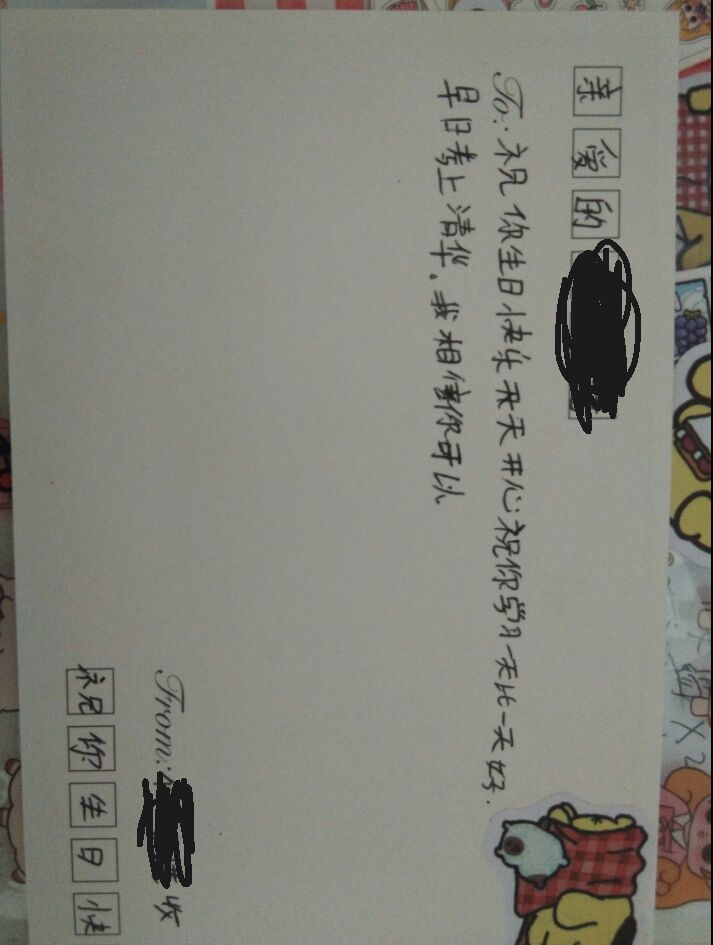 亲爱的
To: 祝你生日快乐天天开心祝你学习一天比一天好.
早日考上清华。我相信你可以
From: 收
祝你生日快
X2